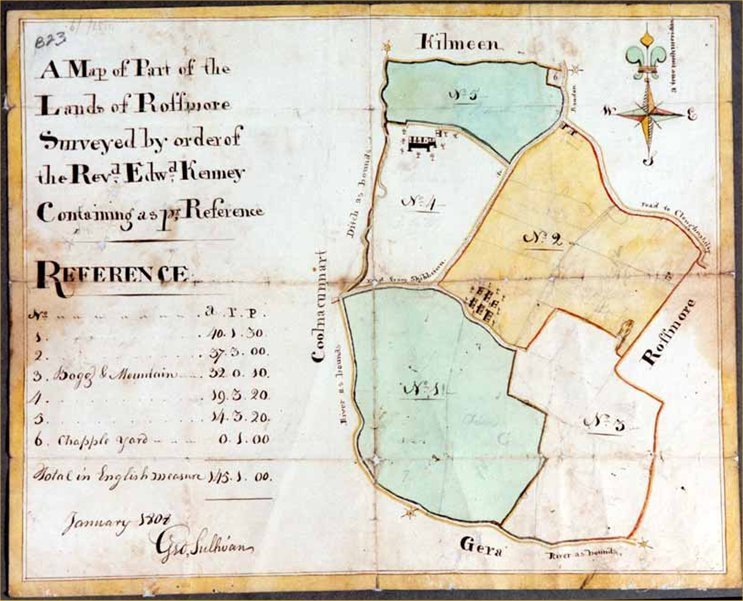 B23
A Map of Part of the
Lands of Rossmore
Surveyed by order of
the Revd. Edwd. Kenney
Containing as pr. Reference
REFERENCE
No. a. r. p.
1. 40. 1. 30
2. 37. 3. 00.
3. Bogg & Mountain 32. 0. 10
4. 19. 3. 20
5. 14. 3. 20
6. Chapple Yard 0. 1. 00
Total in English measure 145. 1. 00.
January
Geo. Sullivan
Kilmeen
No. 5
6
Bandon
W
E
S
No. 4
Ditch as bounds
No. 2
road to
road from Skibbereen
Coolnacunnart
Rossmore
River as bounds
No. 1
No. 3
Gera
River as bounds